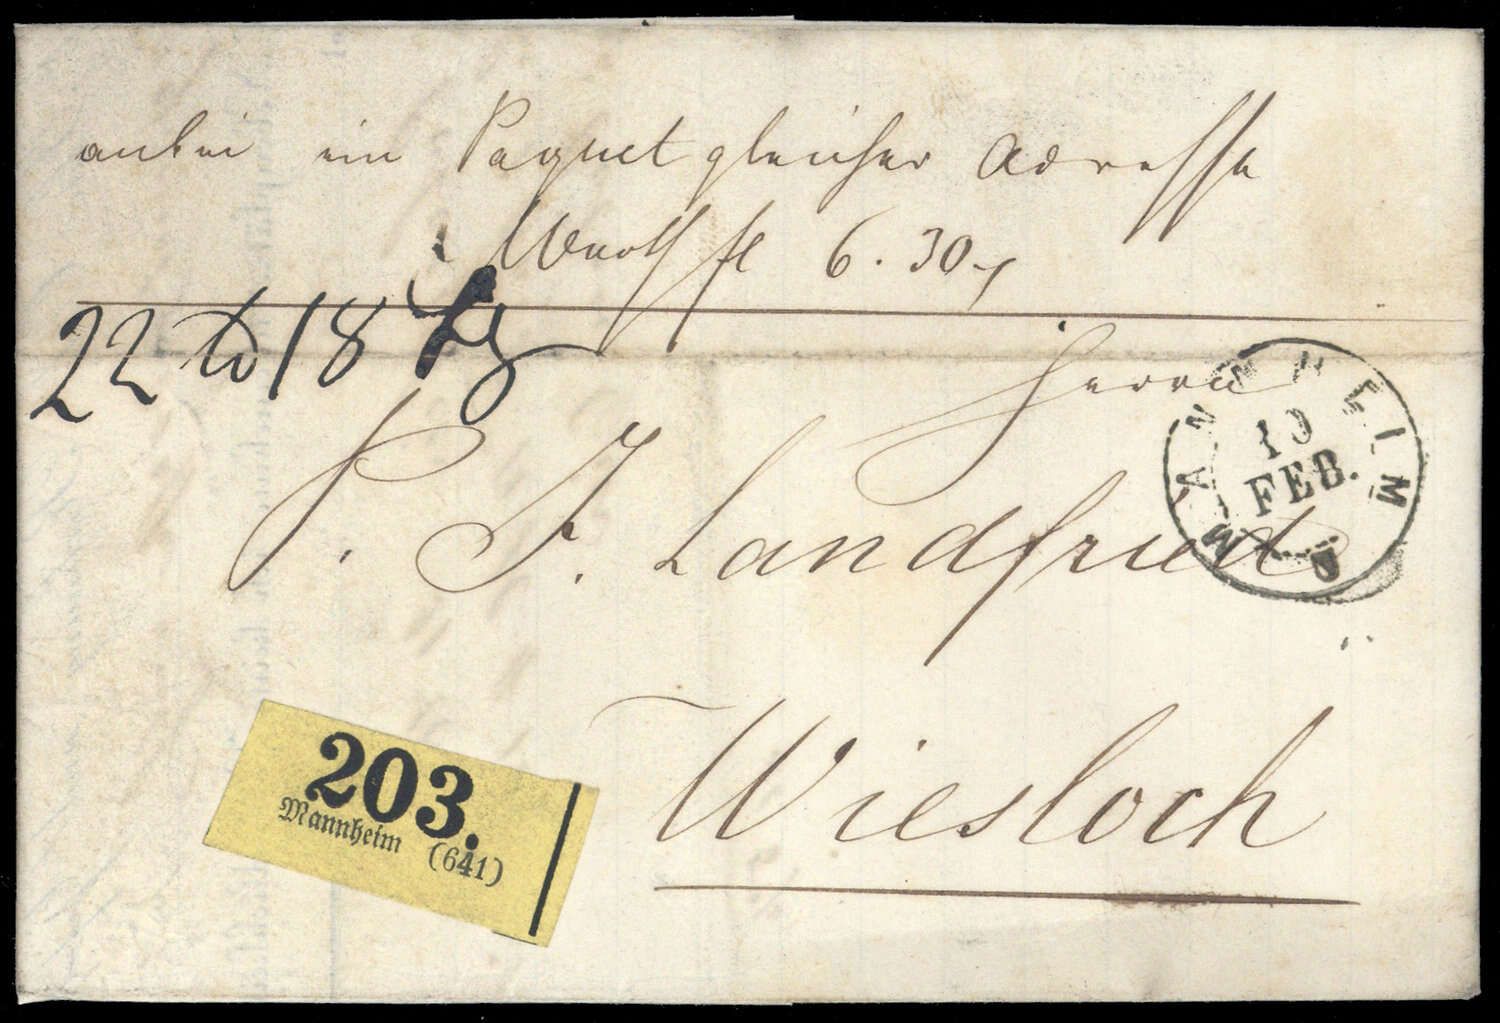 anbei ein Paquet gleicher Adresse
Werth fl 6. 30
22 18
Herrn
P. J. Landfried
Wiesloch
MANNHEIM
10
FEB.
203.
Mannheim (641)